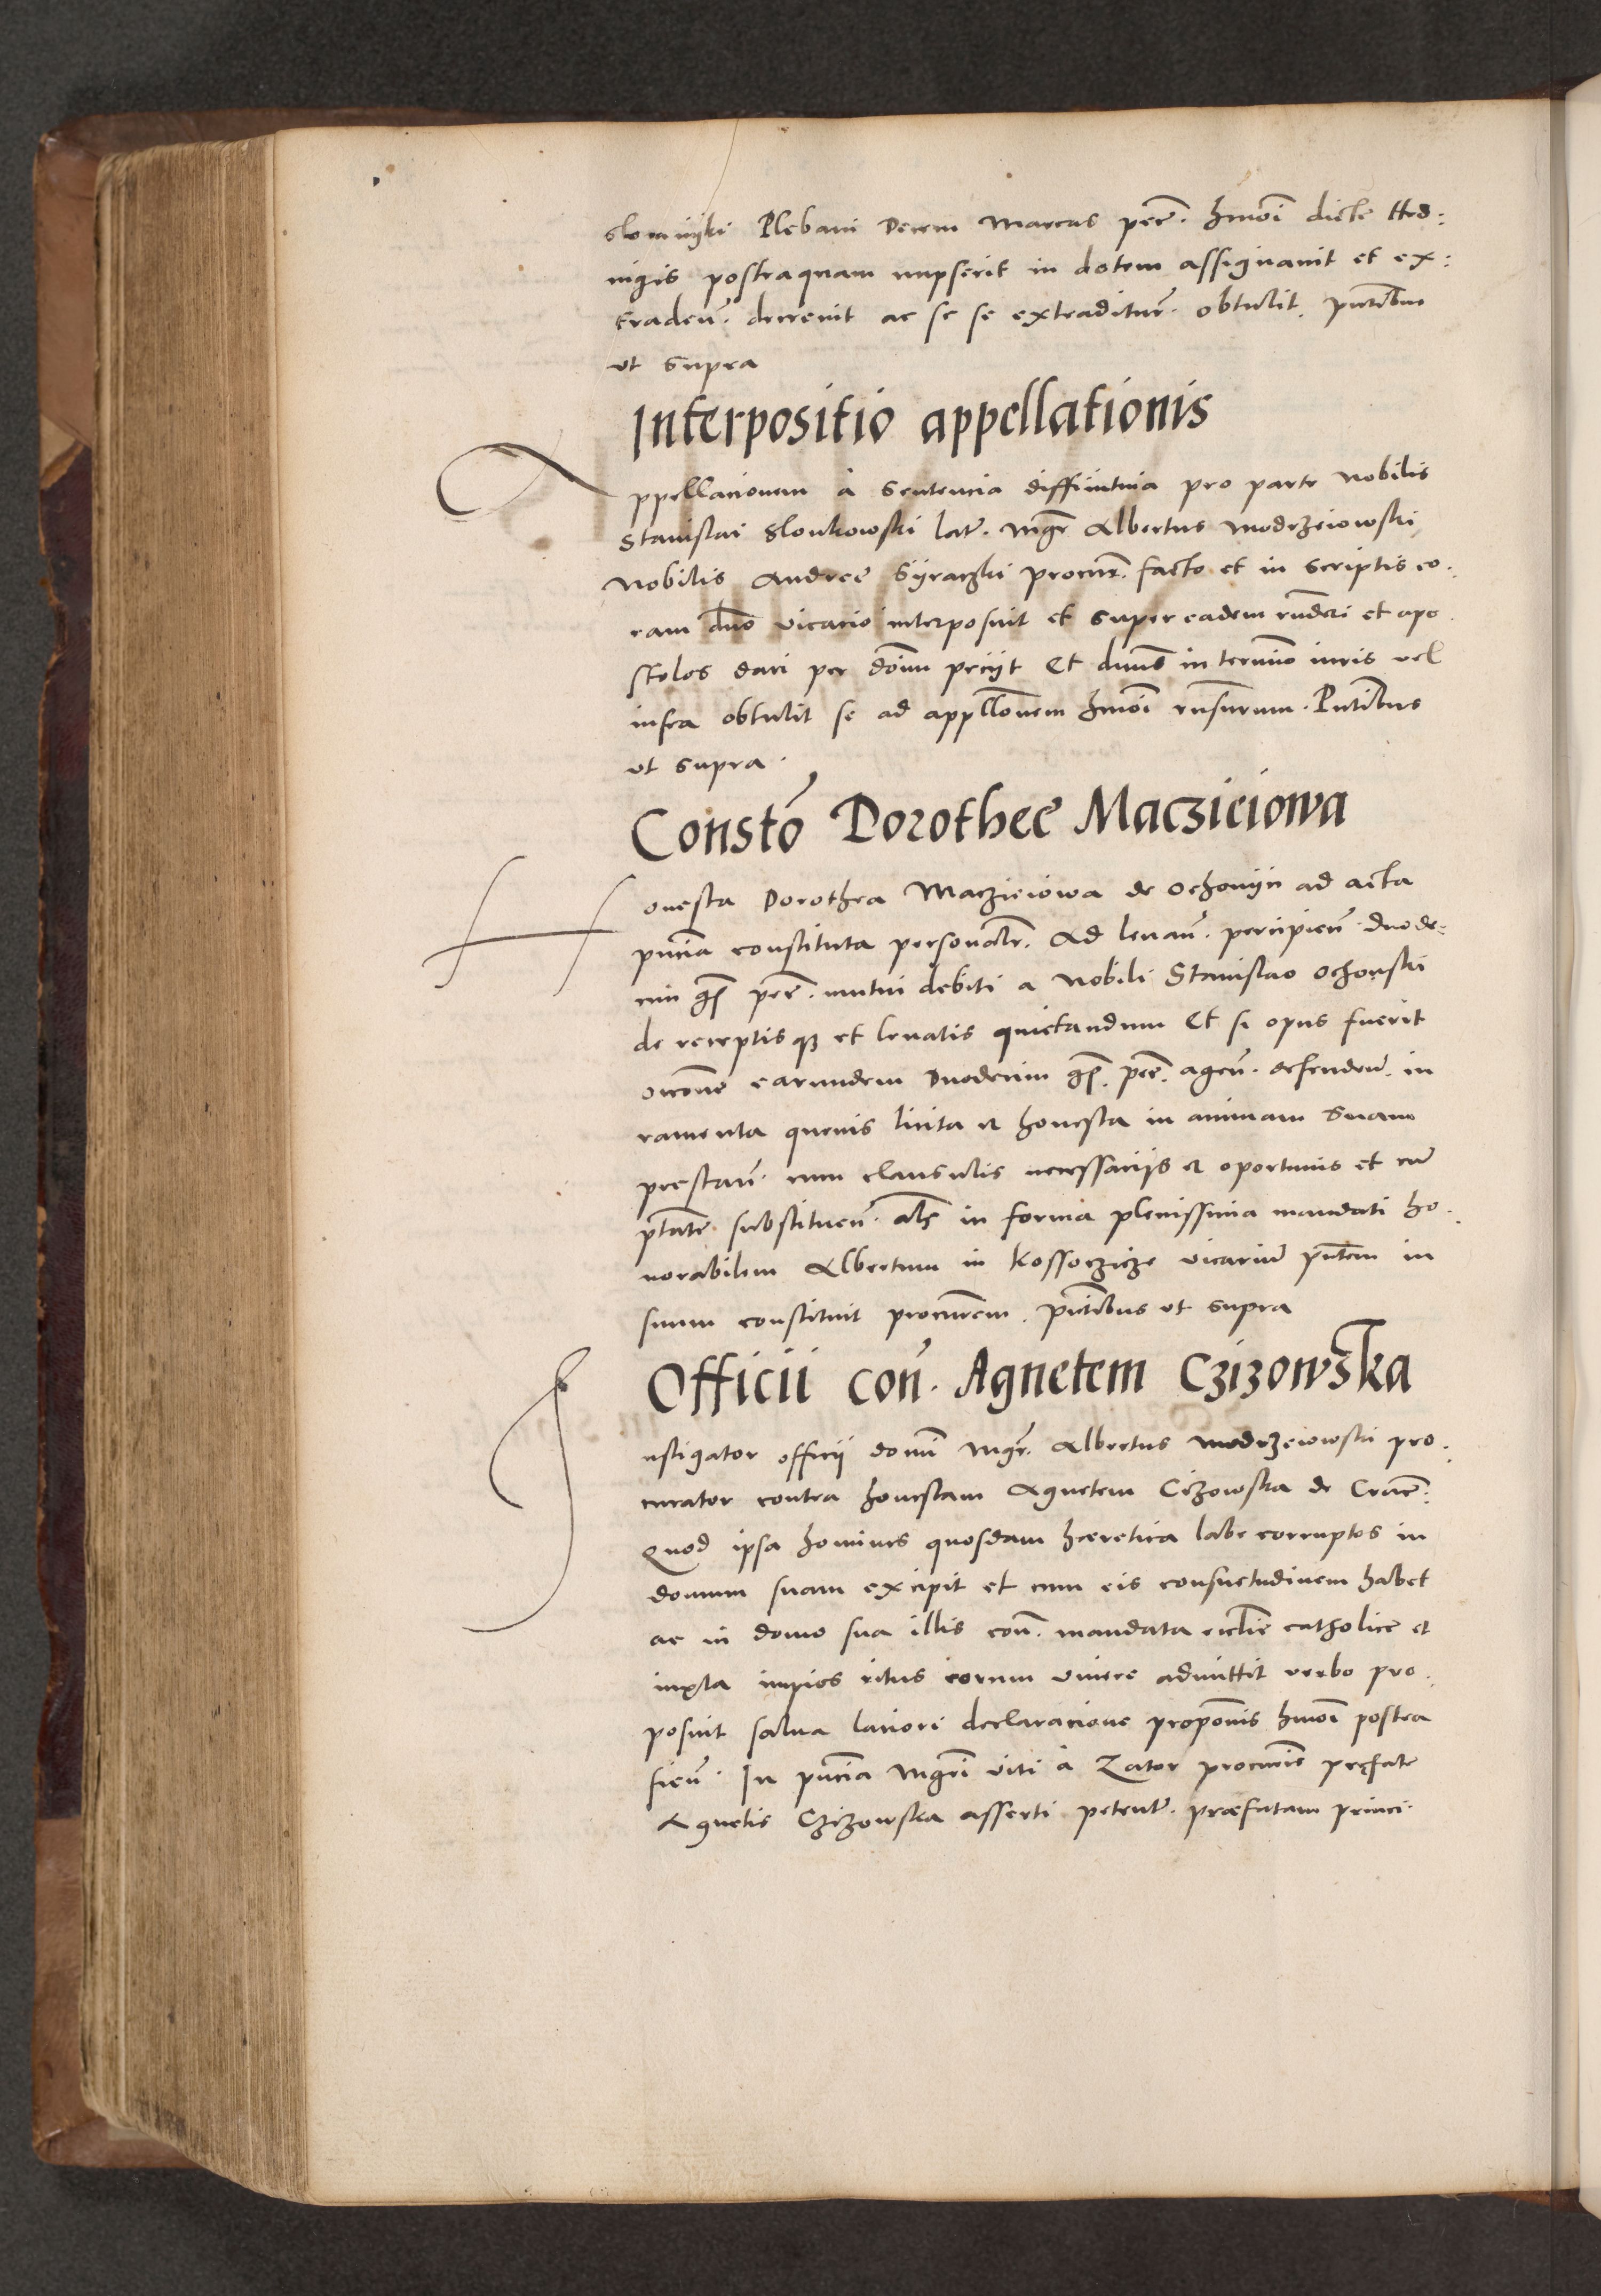 Plebani Decem Marcas peč. hmoi dicte Hed:
nigis postraquam nupserit in dotem assignavit et ex:
traden̄. decrevit ac se se extraditur̄. obtulit. pn̄tibus
ut supra
Interpositio appellationis
Appellacionem à sentencia diffinitiva pro parte Nobilis
Stanislai Slonkowski lat̄. Mgr̄ Albertus Modrzeiowski
Nobilis Andree Syraczki procur̄. facto et in scriptis co.
ram dno vicario interposuit et super eadem rn̄deri et apo.
stolos dari per dōnum peciit Et dnus̄ in termino iuris vel
infra obtulit se ad appllōnem hmōi rn̄surum. Pn̄tibus
ut supra.
Constō Dorothee Macziciowa
Honesta Dorothea Maczieiowa de Ochonyn ad acta
pn̄cia constituta personalr̄. Ad levan̄. percipien̄. duode:
cim gs̄ peč. mutui debiti a Nobili Stanislao Ochonski
de receptisq3 et levatis quietandum Et si opus fuerit
occōne earundem Duodecim gs̄. peč. agen̄. defenden̄. iu
ramenta quevis licita et honesta in animam suam
prestan̄. cum clausulis necessariis et oportunis et cum̄
ptāte substituen̄. als̄ in forma plenissima mandati ho.
norabilem Albertum in Kossoczicze vicariū pn̄tem in
suum constituit procurēm. pn̄tibus ut supra
Officii con̄. Agnetem Czizowska
Instigator officii domī Mgr̄. Albertus Modrzeiowski pro.
curator contra honestam Agnetem Cizowska de Crac̄:
Quod ipsa homines quosdam hæretica labe corruptos in
domum suam excipit et cum eis consuetudinem habet
ac in domo sua illis con̄. mandata ecclīe catholice et
iuxta impios ritus eorum vivere admittit verbo pro.
posuit salva laciori declaracione propōnis hmōi postea
fien̄. In pn̄cia Mgrī Viti à Zator procuris̄ pręfate
Agnetis Czizowska asserti petent̄. præfatam princi.